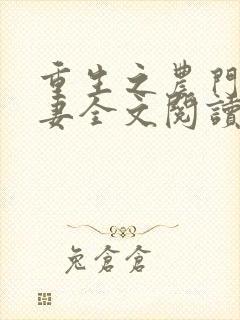 重生之農門
妻全文閱讀
兔倉倉